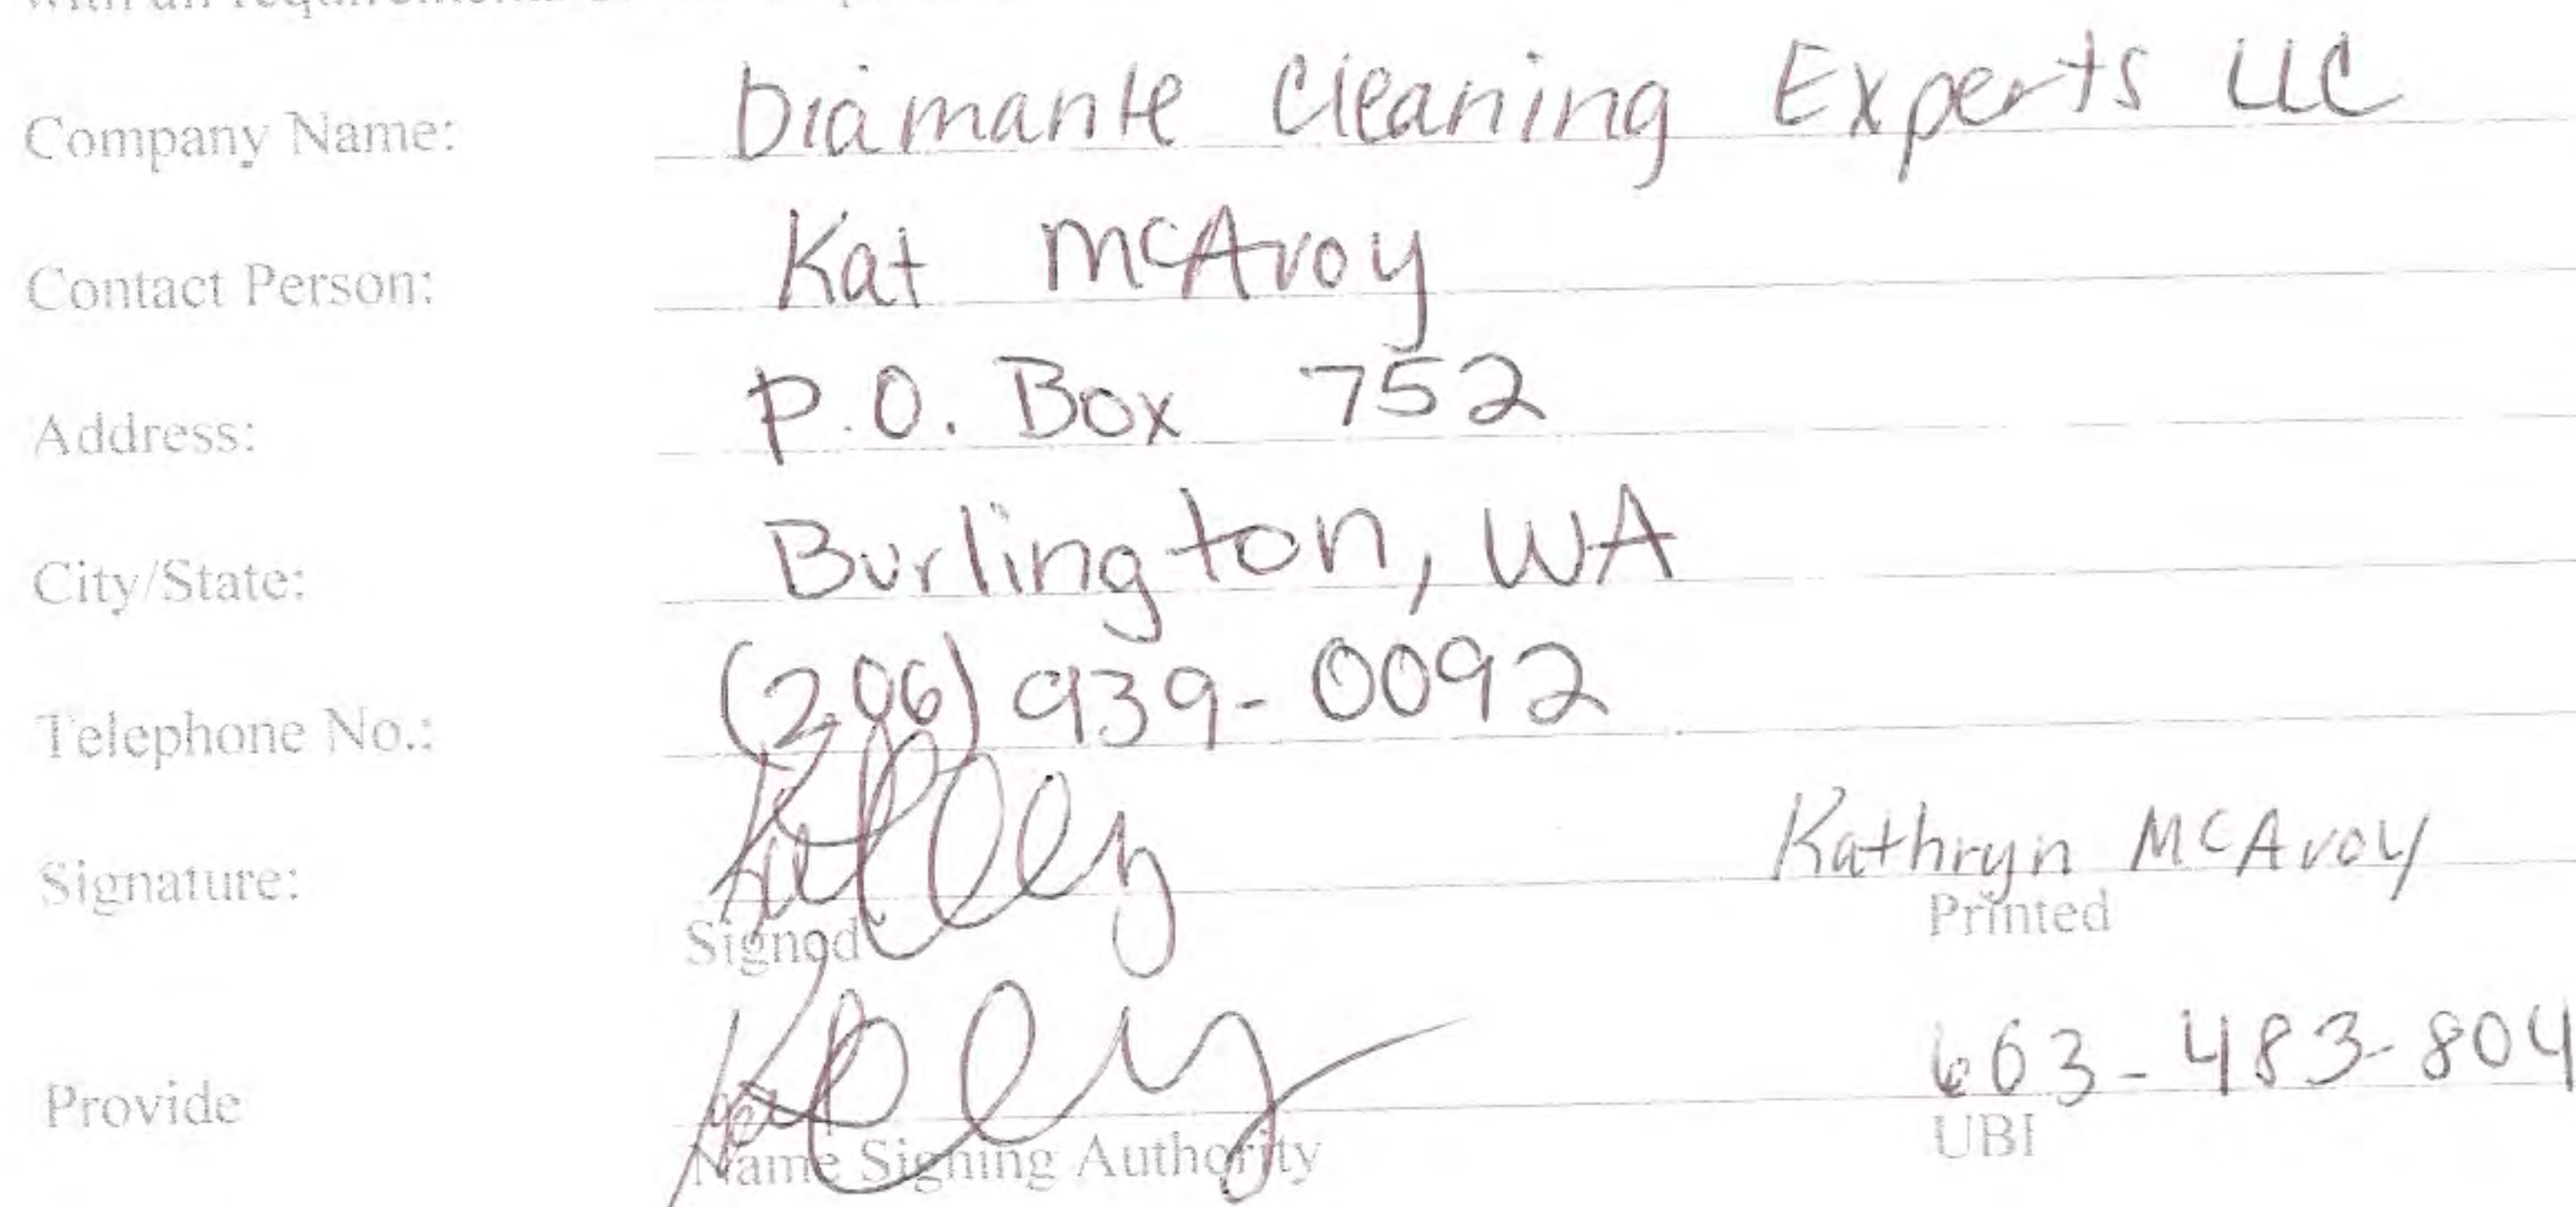 with all requirements
Company Name: Diamante Cleaning Experts LLC
Contact Person: Kat McAvoy
Address: P.O. Box 752
City/State: Burlington, WA
Telephone No.: (206) 939-0092
Signature: Kathryn McAvoy
Signed Printed
Provide 603-483-804
Name Signing Authority UBI